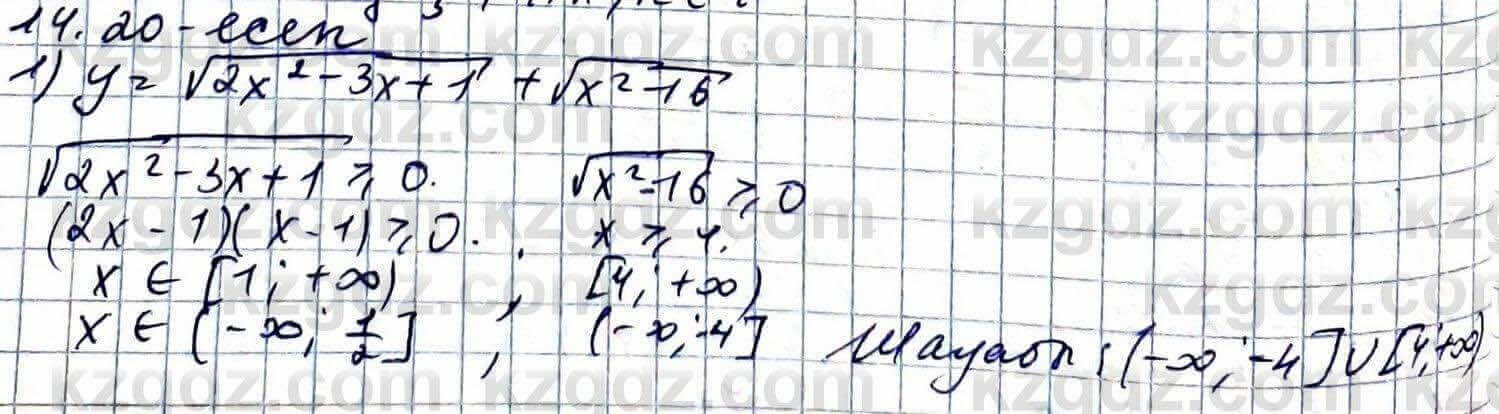 14.20-есеп
1) y = √2x² - 3x + 1 + √x² - 16
√2x² - 3x + 1 ⩾ 0. √x² - 16 ⩾ 0
(2x - 1)(x - 1) ⩾ 0. x ⩾ 4.
x ∈ [1; +∞) ; [4; +∞)
x ∈ (-∞; 1/2] , (-∞; -4] Жауабы: (-∞; -4] ∪ [4; +∞)
kzgdz.com